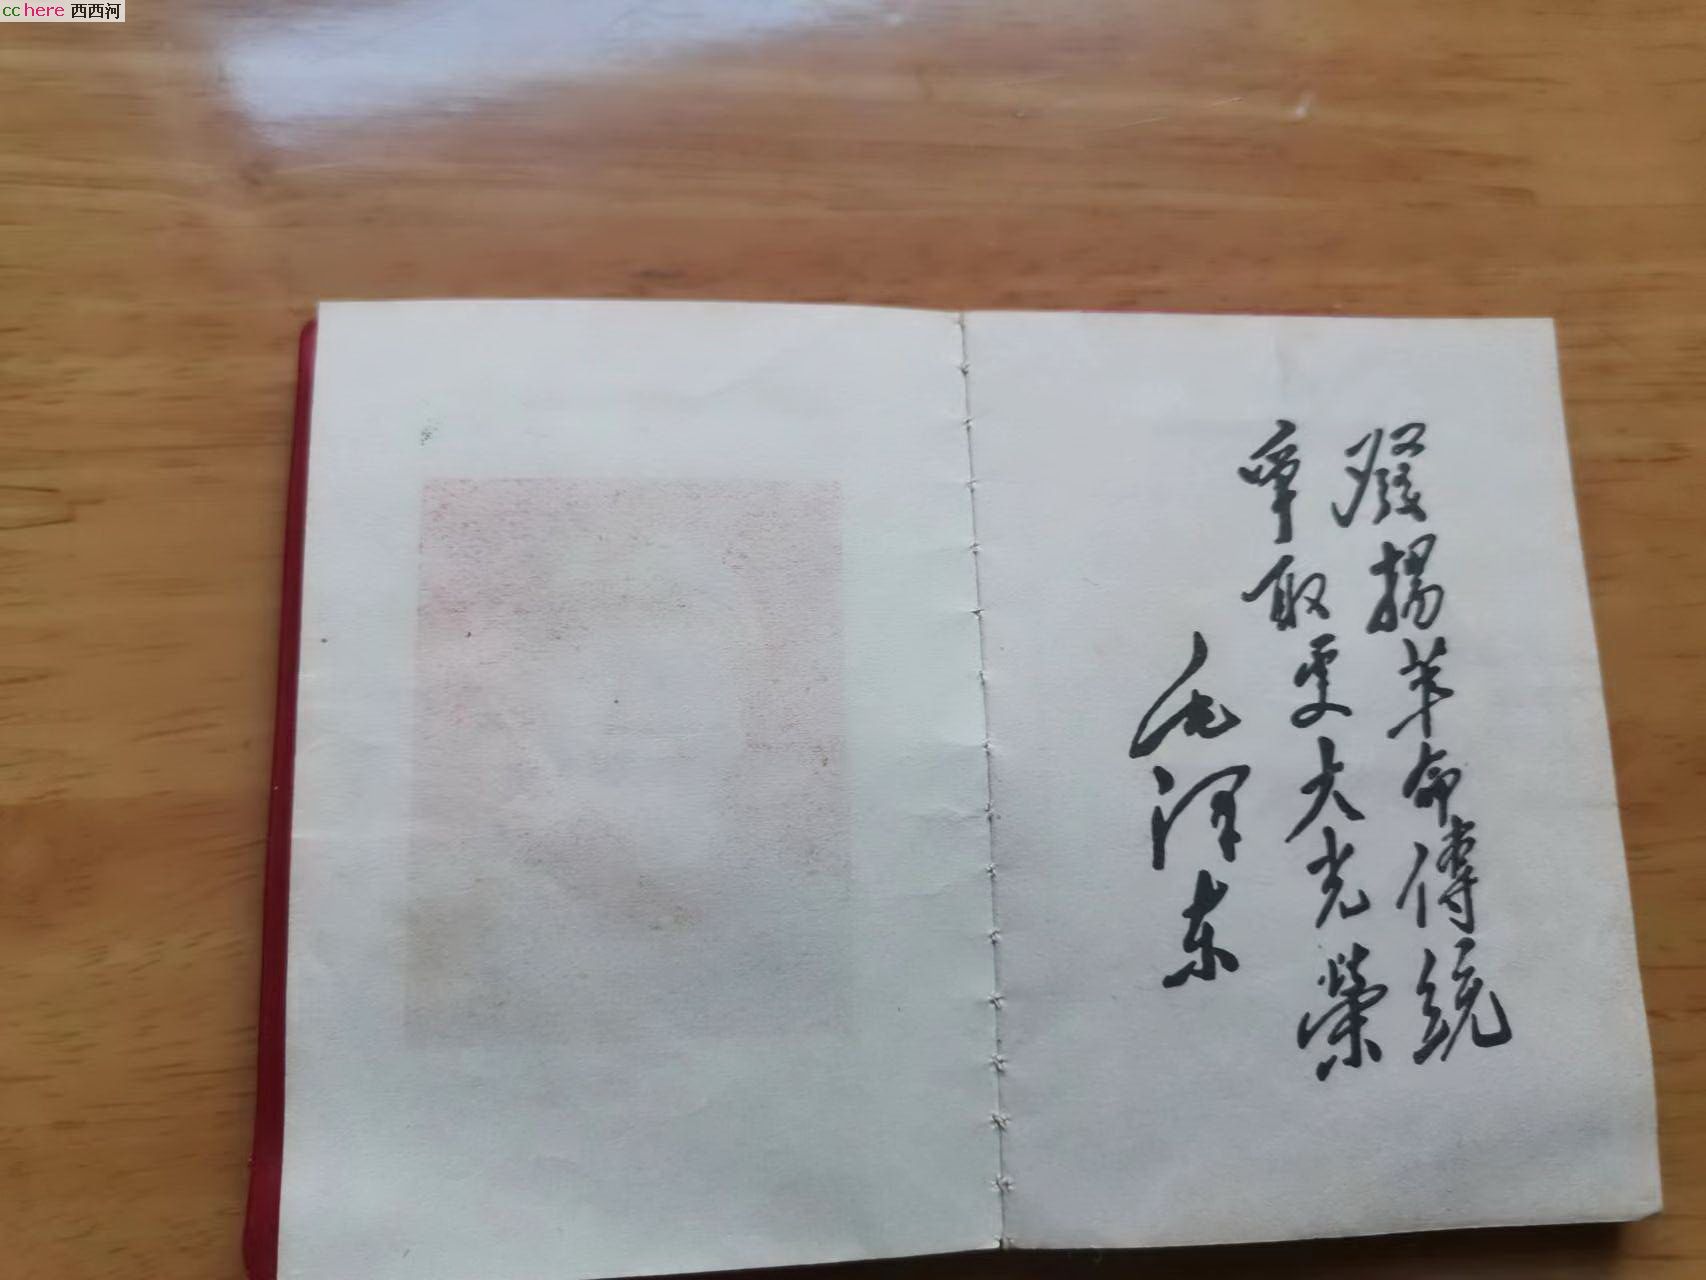 cchere 西西河
發揚革命傳統
爭取更大光榮
毛澤东